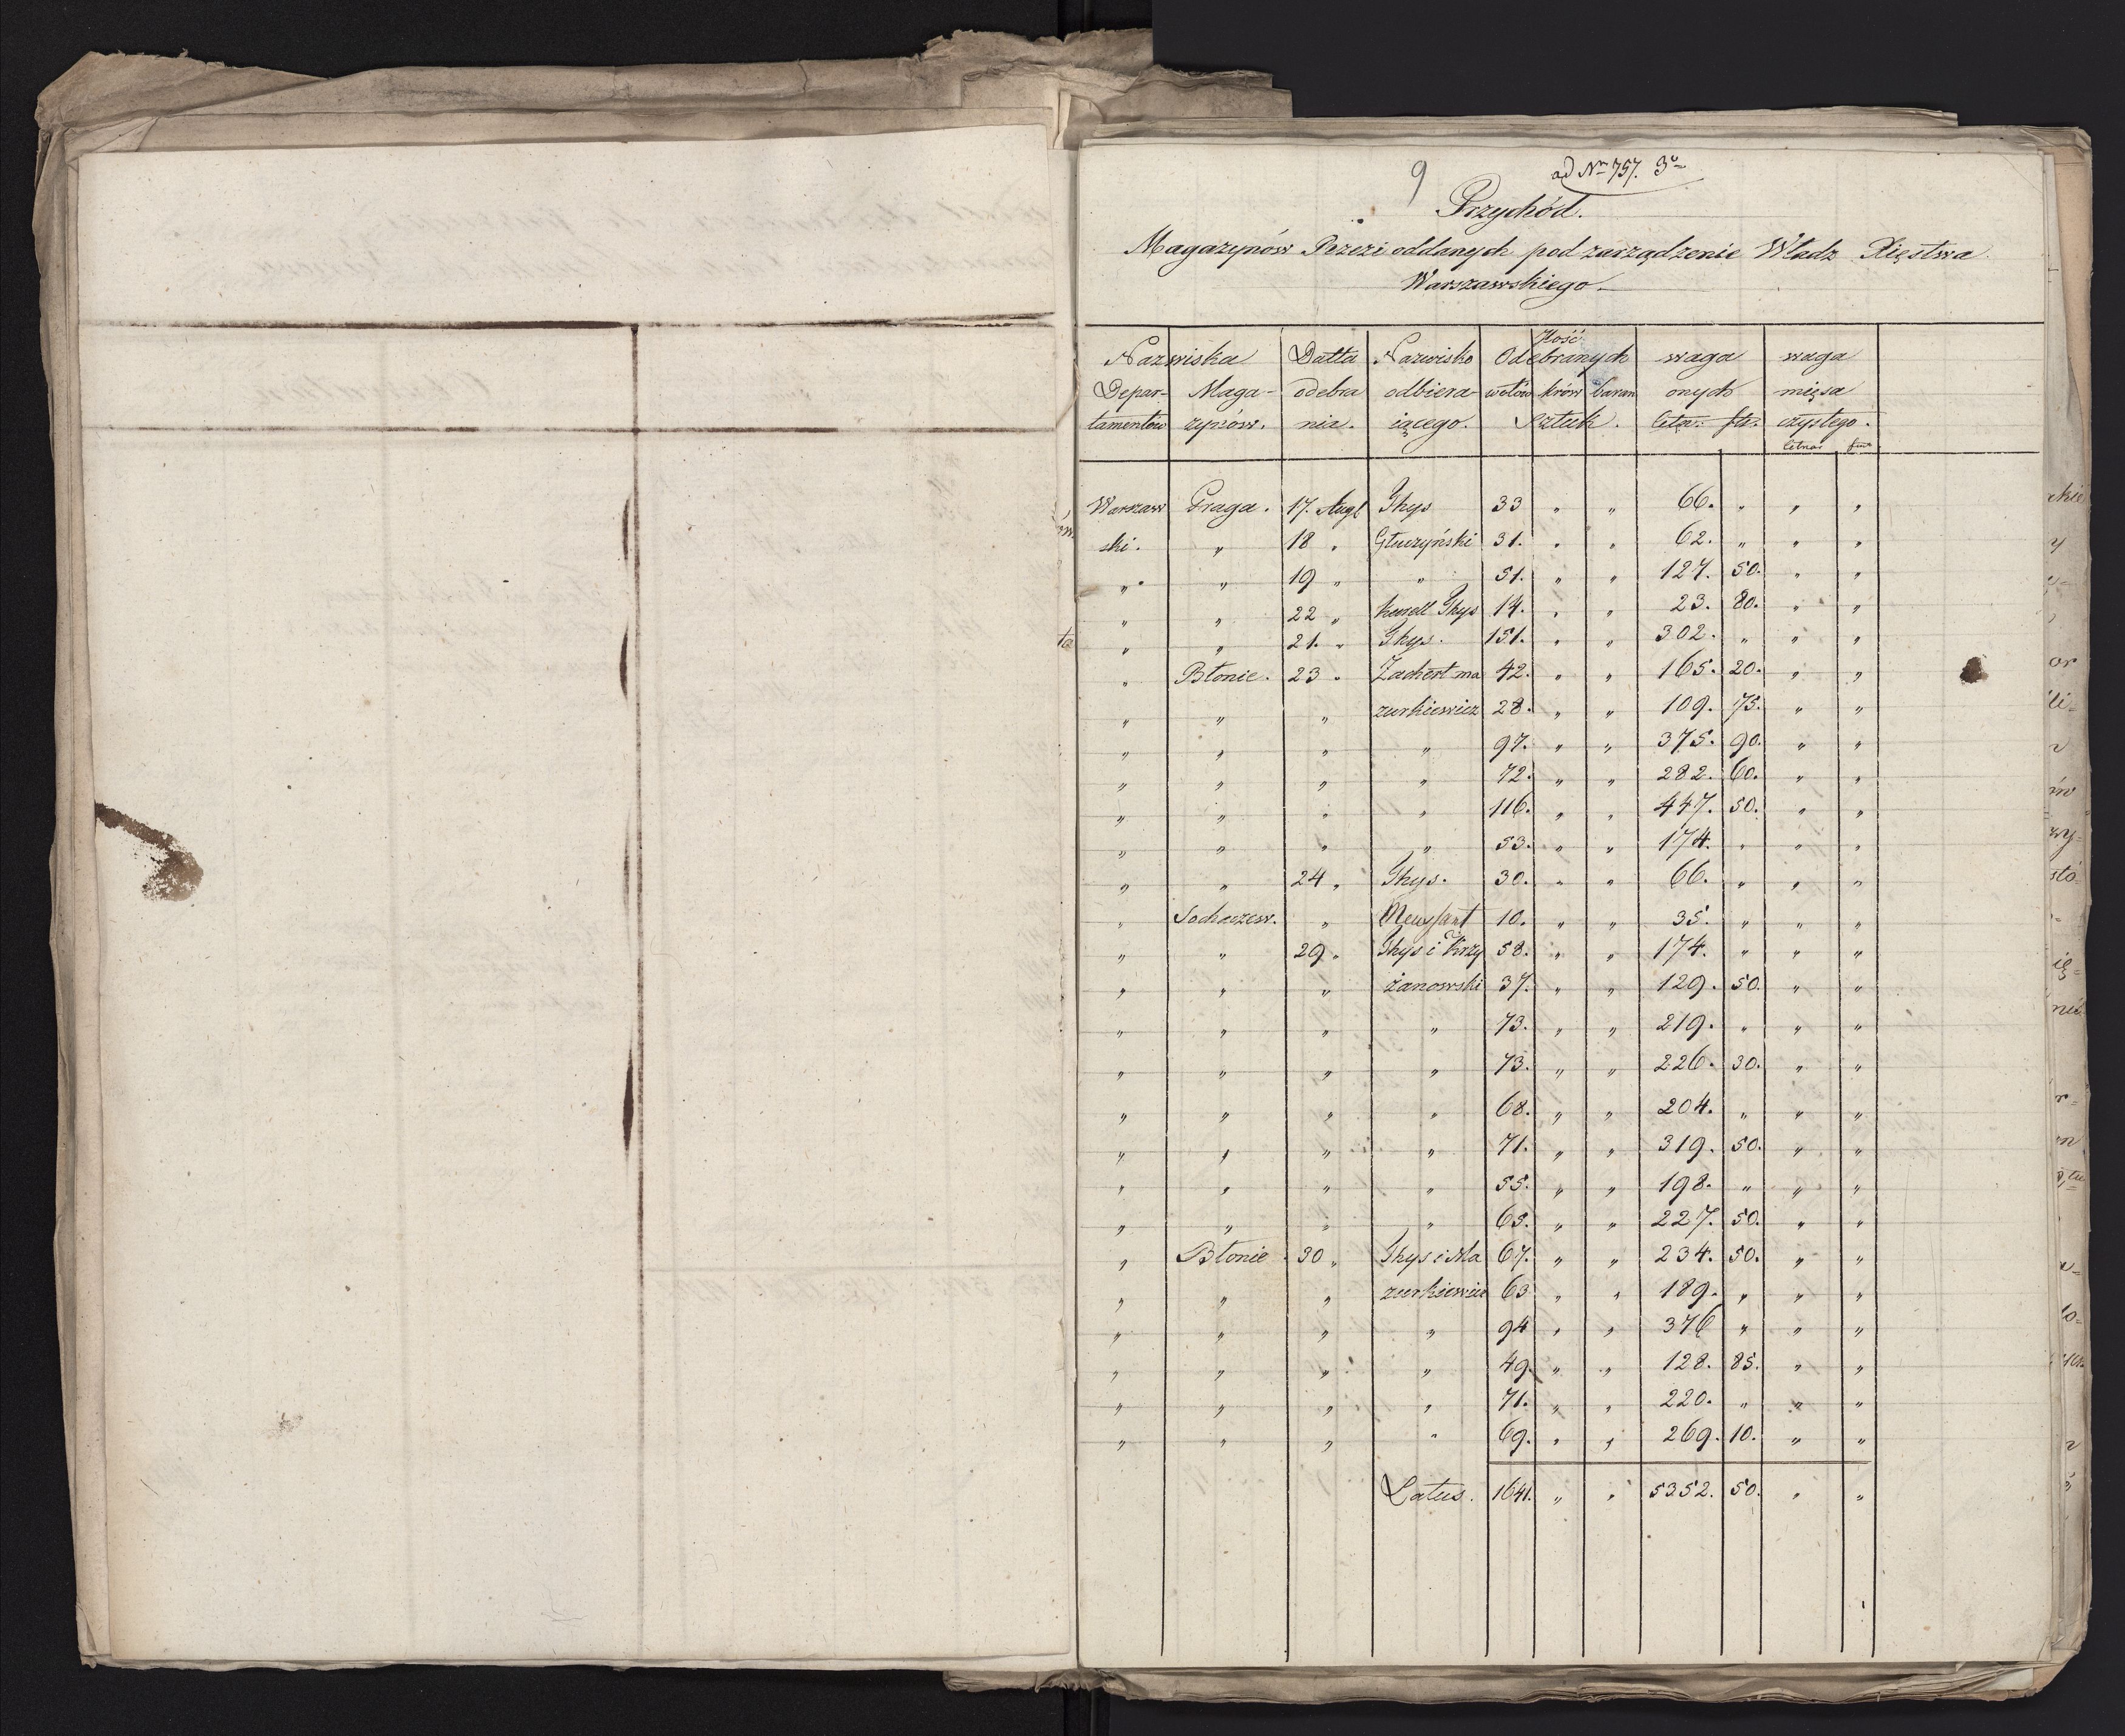 9 ad Nrn 757. 3o
Przychód.
Magazynów Rzezi oddanych pod zarządzenie Władz Xięstwa
Warszawskiego
Nazwiska Datta Nazwisko Ilość Odebranych waga waga
Depar- Maga- odebra odbiera wołów krów baran onych mięsa
tamentów zynów. nia. iącego. Sztuk. Cetn. fu. czystego.
Cetna fun
Warszaw Praga. 17. Aug Thys 33 " " 66. " " "
ski. " 18 " Głuczyński 31. " " 62. " " "
" " 19 " " 51. " " 127. 50. " "
" " 22 " Thys 14. " " 23. 80. " "
" " 21. " Thys. 151. " " 302. " " "
" Błonie. 23 " Zachert ma 42. " " 165. 20. " "
" " " zurkiewicz 28. " " 109. 75. " "
" " " " 97. " " 375. 90. " "
" " " " 72. " " 282. 60. " "
" " " " 116. " " 447. 50. " "
" " " " 53. " " 174. " " "
" " 24 " Thys. 30. " " 66. " " "
" Sochaczew. " 10. " " 35. " " "
" " 29 " Thys i Krzy 58. " " 174. " " "
" " " żanowski 37. " " 129. 50. " "
" " " " 73. " " 219. " " "
" " " " 73. " " 226. 30. " "
" " " " 68. " " 204. " " "
" " " " 71. " " 319. 50. " "
" " " " 55. " " 198. " " "
" " " " 65. " " 227. 50. " "
" Błonie 30 " Thys i Ma 67. " " 234. 50. " "
" " " zurkiewicz 63 " " 189. " " "
" " " " 94 " " 376 " " "
" " " " 49. " " 128. 85. " "
" " " " 71. " " 220. " " "
" " " " 69. " " 269. 10. " "
Latus. 1641. " " 5352. 50. " "